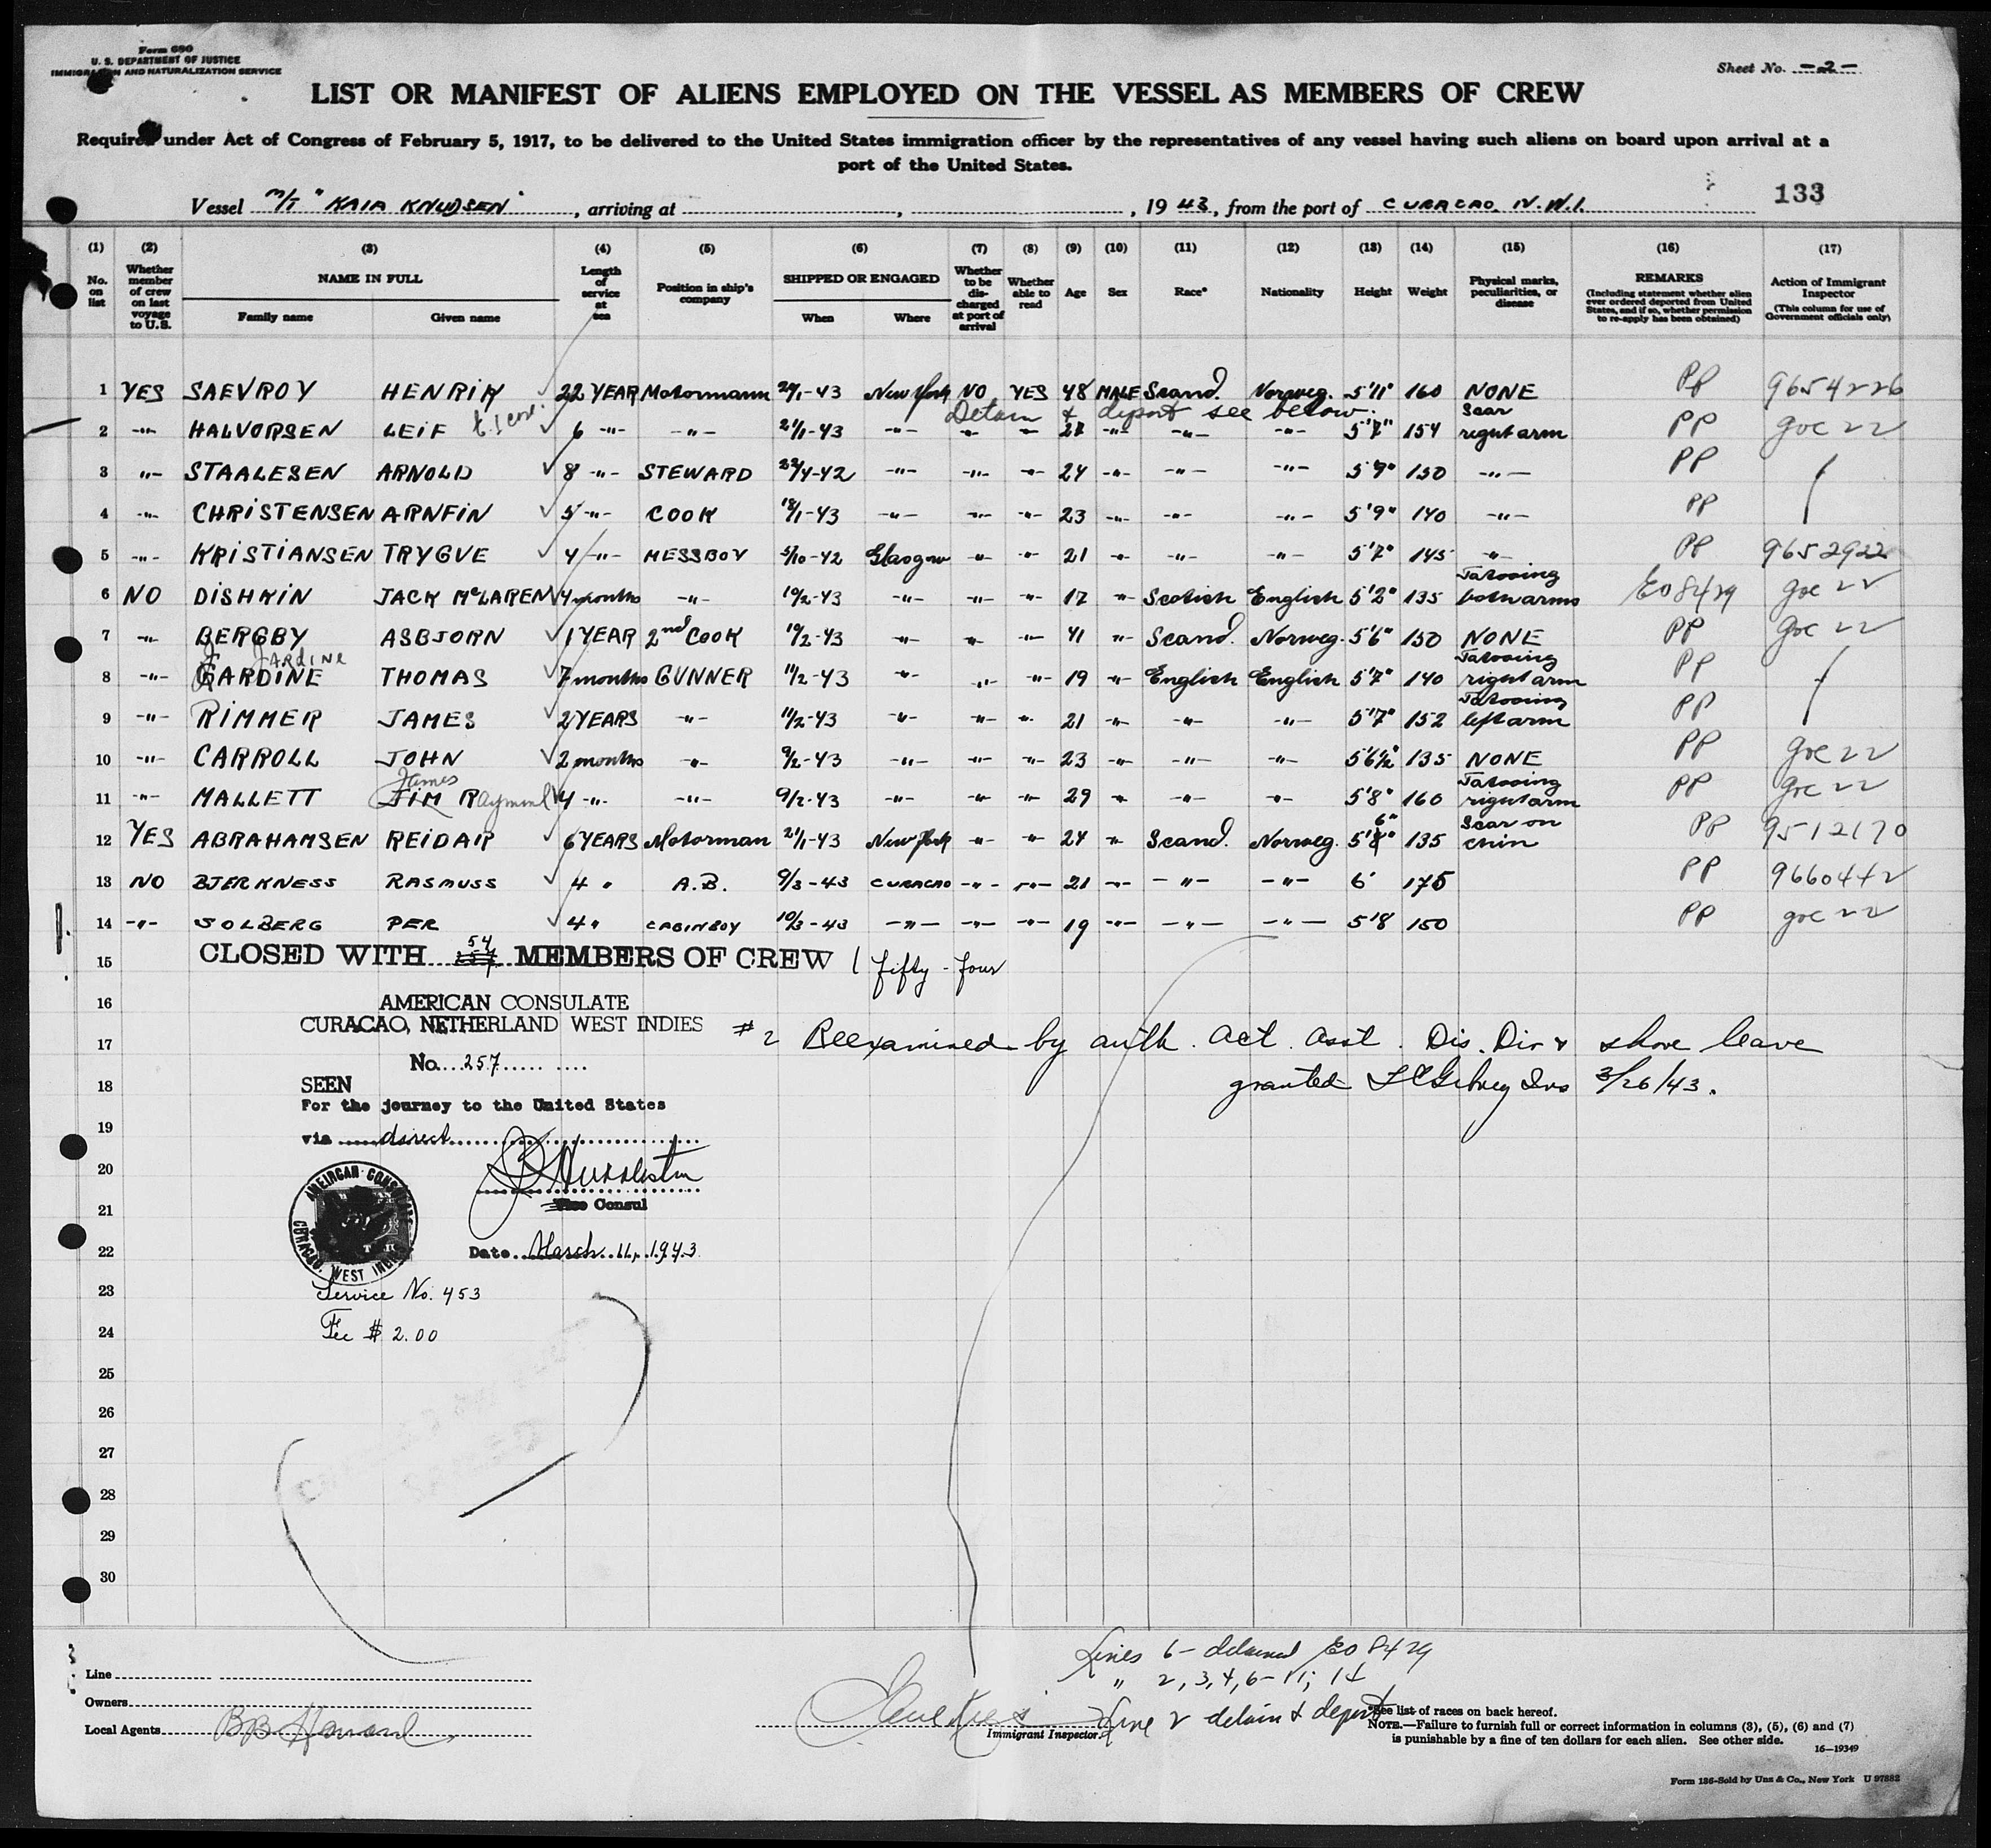 Form 680
U. S. DEPARTMENT OF JUSTICE
IMMIGRATION AND NATURALIZATION SERVICE
Sheet No. -2-
LIST OR MANIFEST OF ALIENS EMPLOYED ON THE VESSEL AS MEMBERS OF CREW
Required under Act of Congress of February 5, 1917, to be delivered to the United States immigration officer by the representatives of any vessel having such aliens on board upon arrival at a
port of the United States.
133
Vessel M/T "KAIA KNUDSEN", arriving at , , 1943, from the port of CURACAO. N.W.I.
(1) (2) (3) (4) (5) (6) (7) (8) (9) (10) (11) (12) (13) (14) (15) (16) (17)
No. on list
Whether member of crew on last voyage to U.S.
NAME IN FULL
Family name Given name
Length of service at sea
Position in ship's company
SHIPPED OR ENGAGED
When Where
Whether to be discharged at port of arrival
Whether able to read
Age Sex Race* Nationality Height Weight
Physical marks, peculiarities, or disease
REMARKS
(Including statement whether alien ever ordered deported from United States, and if so, whether permission to re-apply has been obtained)
Action of Immigrant Inspector
(This column for use of Government officials only)
1 YES SAEVROY HENRIK 22 YEAR Motormann 24/1-43 New York NO YES 48 MALE Scand. Norweg. 5'11" 160 NONE PP 9654226
Detain & deport see below.
2 -"- HALVORSEN LEIF 6 -"- -"- 21/1-43 -"- -"- -"- 27 -"- -"- -"- 5'7" 154 Scar right arm PP
3 -"- STAALESEN ARNOLD 8 -"- STEWARD 22/4-42 -"- -"- -"- 24 -"- -"- -"- 5'9" 150 -"- PP
4 -"- CHRISTENSEN ARNFIN 5 -"- COOK 18/1-43 -"- -"- -"- 23 -"- -"- -"- 5'9" 140 -"- PP
5 -"- KRISTIANSEN TRYGVE 4 -"- MESSBOY 5/10-42 Glasgow -"- -"- 21 -"- -"- -"- 5'7" 145 -"- PP 9652922
6 NO DISHKIN JACK McLAREN 4 months -"- 10/2-43 -"- -"- -"- 17 -"- Scotish English 5'2" 135 Tatooing both arms E08429
7 -"- BERGBY ASBJORN 1 YEAR 2nd COOK 10/2-43 -"- -"- -"- 41 -"- Scand. Norweg. 5'6" 150 NONE PP
JARDINE
8 -"- JARDINE THOMAS 7 months GUNNER 11/2-43 -"- -"- -"- 19 -"- English English 5'7" 140 Tatooing right arm PP
9 -"- RIMMER JAMES 2 YEARS -"- 11/2-43 -"- -"- -"- 21 -"- -"- -"- 5'7" 152 Tatooing left arm PP
10 -"- CARROLL JOHN 2 months -"- 9/2-43 -"- -"- -"- 23 -"- -"- -"- 5'6½" 135 NONE PP
James
11 -"- MALLETT JIM Raymond 4 -"- -"- 9/2-43 -"- -"- -"- 29 -"- -"- -"- 5'8" 160 Tatooing right arm PP
12 YES ABRAHAMSEN REIDAR 6 YEARS Motorman 21/1-43 New York -"- -"- 24 -"- Scand. Norweg. 5'6" 135 Scar on chin PP 9512170
13 NO BJERKNESS RASMUSS 4 " A.B. 9/3-43 CURACAO -"- -"- 21 -"- -"- -"- 6' 175 PP 9660442
14 -"- SOLBERG PER 4 " CABINBOY 10/3-43 -"- -"- -"- 19 -"- -"- -"- 5'8 150 PP
15 CLOSED WITH 54 MEMBERS OF CREW / fifty-four
16 AMERICAN CONSULATE
CURACAO, NETHERLAND WEST INDIES
17 #2 Reexamined by auth. Act. Asst. Dis. Dir & shore leave
No. 257
18 SEEN
granted Ins 3/26/43.
For the journey to the United States
19 via direct
20
Vice Consul
21
22 Date March 11, 1943
AMERICAN CONSULATE CURACAO, WEST INDIES
23 Service No. 453
24 Fee $ 2.00
25
26
27
28
29
30
Lines 6 - detained E08429
" 2, 3, 4, 6-11; 14
Line 2 detain & deport
Line
Owners
Local Agents
Immigrant Inspector.
*See list of races on back hereof.
NOTE.—Failure to furnish full or correct information in columns (3), (5), (6) and (7)
is punishable by a fine of ten dollars for each alien. See other side.
16—19349
Form 136-Sold by Unz & Co., New York U 97882